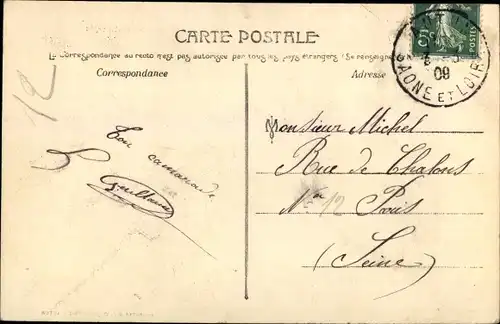 CARTE POSTALE
La Correspondance au recto n'est pas autorisée par tous les pays étrangers (Se renseigner
Correspondance
Adresse
5c POSTES
SAONE ET LOIRE
09
12
Ton camarade
Guillaume
Monsieur Michel
Rue de Chalons
No 12 Paris
(Seine)